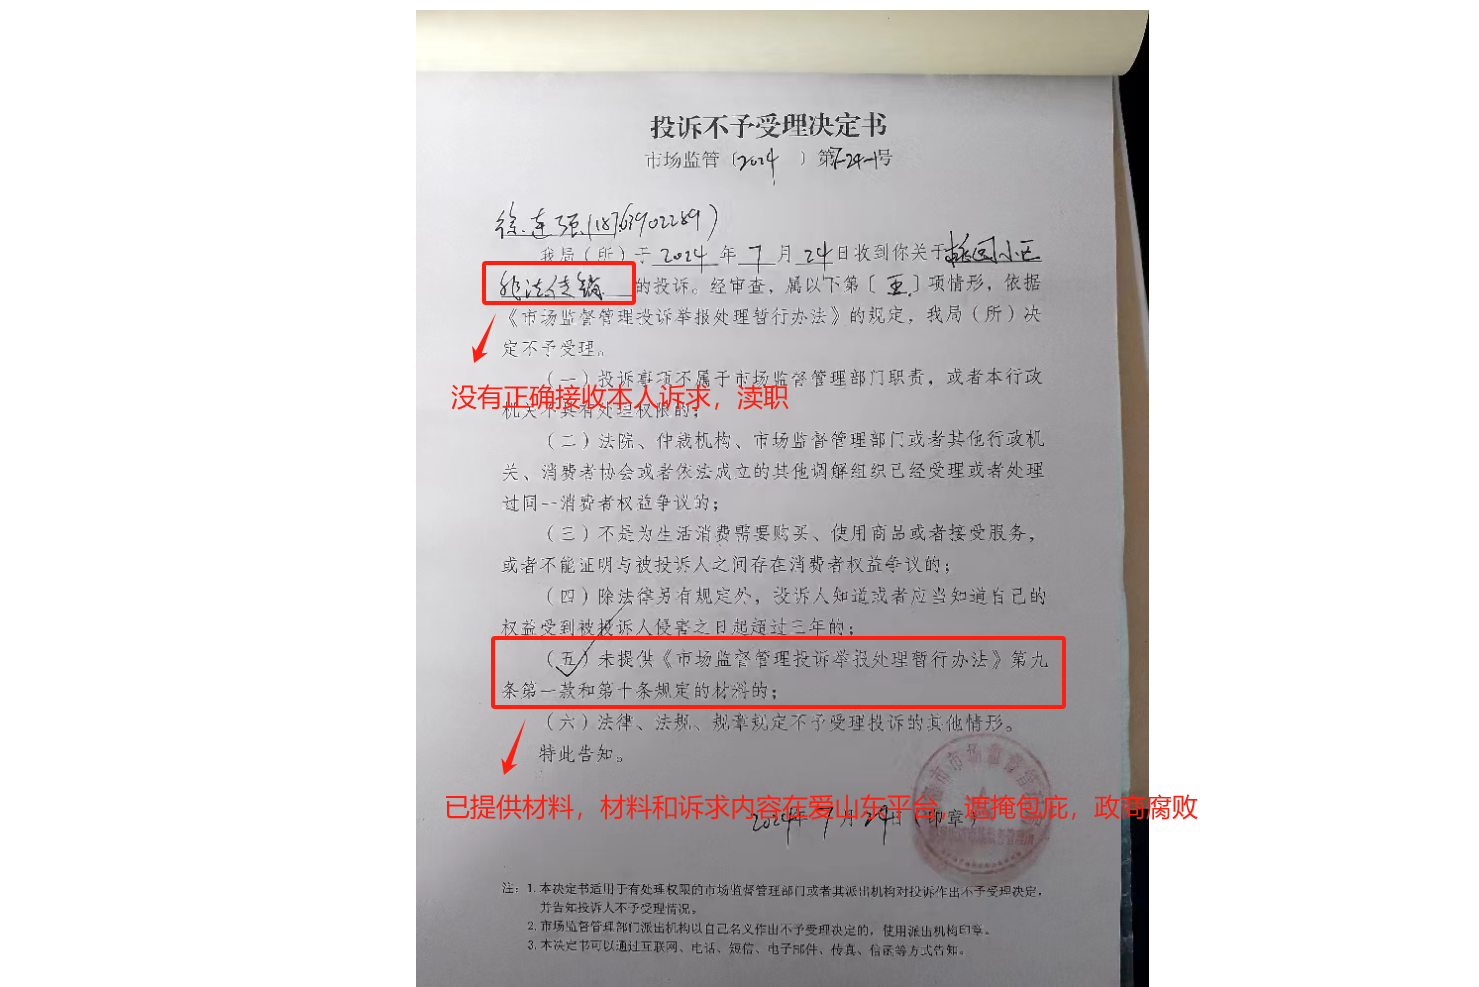 投诉不予受理决定书
市场监管〔2024 〕第7-24-1号
徐连强(18763902289)
我局（所）于2024年7月24日收到你关于桃园小区
非法传销的投诉。经审查，属以下第〔五〕项情形，依据
《市场监督管理投诉举报处理暂行办法》的规定，我局（所）决
定不予受理。
（一）投诉事项不属于市场监督管理部门职责，或者本行政
没有正确接收本人诉求，渎职
机关不具有处理权限的；
（二）法院、仲裁机构、市场监督管理部门或者其他行政机
关、消费者协会或者依法成立的其他调解组织已经受理或者处理
过同一消费者权益争议的；
（三）不是为生活消费需要购买、使用商品或者接受服务，
或者不能证明与被投诉人之间存在消费者权益争议的；
（四）除法律另有规定外，投诉人知道或者应当知道自己的
权益受到被投诉人侵害之日起超过三年的；
（五）未提供《市场监督管理投诉举报处理暂行办法》第九
条第一款和第十条规定的材料的；
（六）法律、法规、规章规定不予受理投诉的其他情形。
特此告知。
已提供材料，材料和诉求内容在爱山东平台，遮掩包庇，政商腐败
2024年7月29日（印章）
市市场监督管
注：1. 本决定书适用于有处理权限的市场监督管理部门或者其派出机构对投诉作出不予受理决定，
并告知投诉人不予受理情况。
2. 市场监督管理部门派出机构以自己名义作出不予受理决定的，使用派出机构印章。
3. 本决定书可以通过互联网、电话、短信、电子邮件、传真、信函等方式告知。